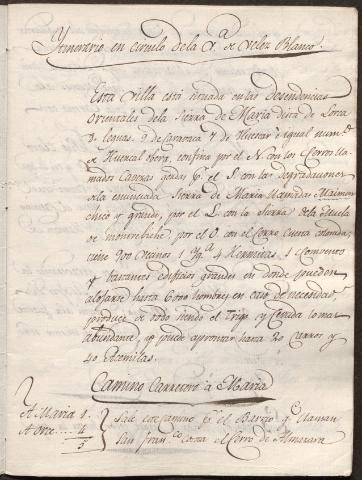 Ytinerario en circulo de la V.ª de Velez Blanco.
Esta villa está situada en las desendencias
orientales de la Sierra de Maria dista de Lorca
8 leguas. 9 de Caravaca 7 de Huescar é igual num.º
de Huercal obera, confina por el N. con los Cerros lla-
mados Cabezas gordas p.r el S. con las degradaciones
a la enunciada Sierra de Maria llamadas Maimon
chico y grande, por el L. con la Sierra de la
de por el O. con el Cerro Cuesta colorada
tiene 900 vecinos 1 Yg.ª 4 Hermitas 1 Combento
y bastantes edificios grandes en donde pueden
alojarse hasta hombres en caso de necesidad,
produce de todo siendo el Trigo y Cevada lo mas
abundante, y puede aprontar hasta 20 carros y
40 acemilas.
Camino Carretero á Maria
A Maria 1.
A Orce.... 4
5
Sale este camino p.r el Barrio q.e llaman
San fran.co corta el Cerro de